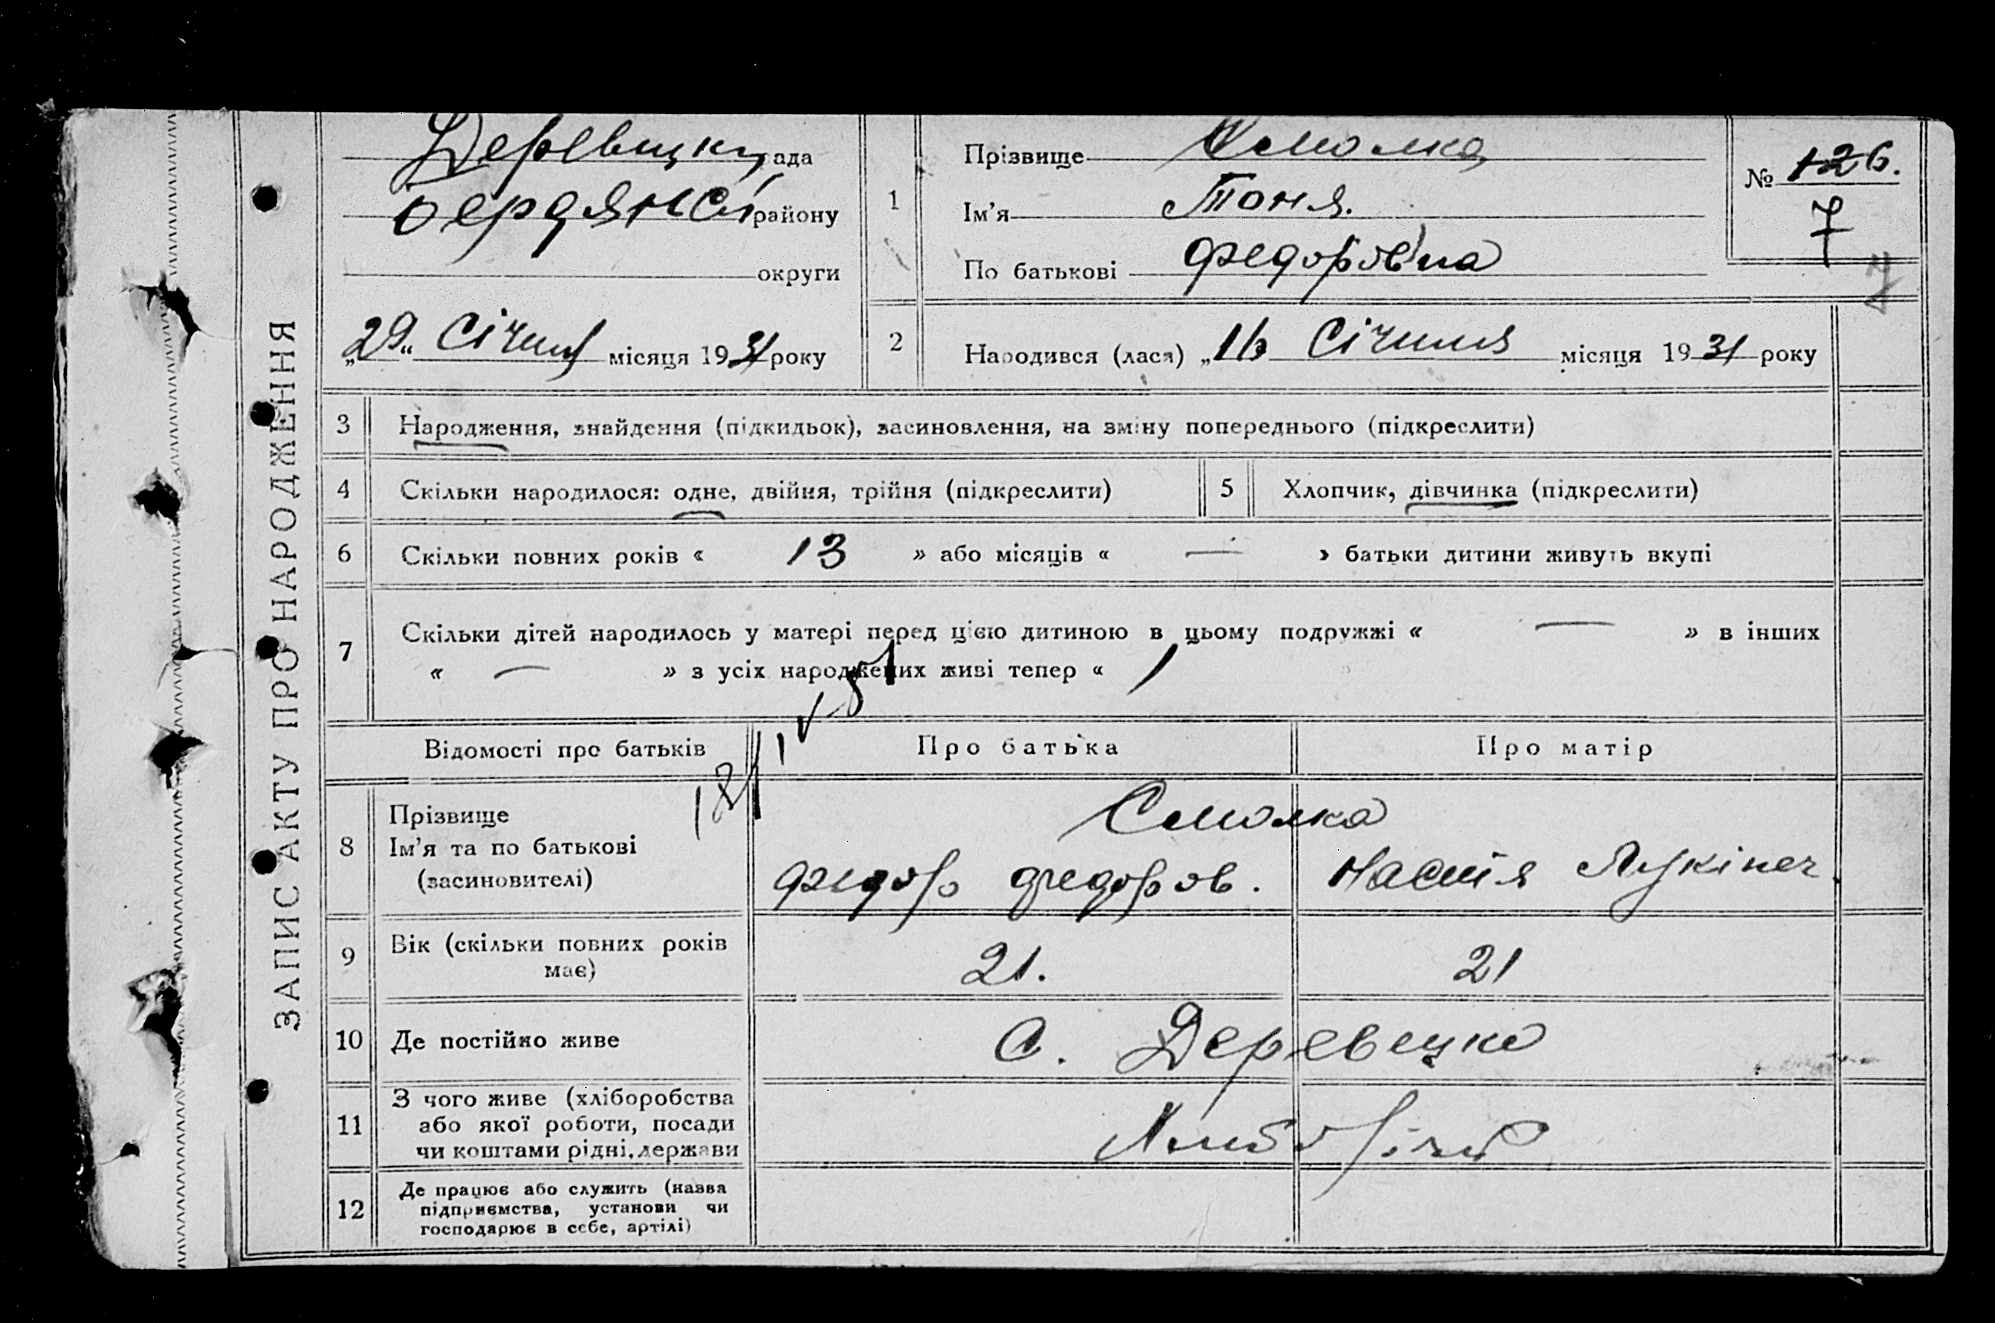 ЗАПИС АКТУ ПРО НАРОДЖЕННЯ
Деревецька рада
району
округи
„29“ Січня місяця 1931 року
1
Прізвище Смолка
Ім’я Тоня.
По батькові Федоровна
№ 126.
7
2
Народився (лася) „16 Січння місяця 1931 року
3 Народження, знайдення (підкидьок), засиновлення, на зміну попереднього (підкреслити)
4 Скільки народилося: одне, двійня, трійня (підкреслити)
5 Хлопчик, дівчинка (підкреслити)
6 Скільки повних років « 13 » або місяців « — » батьки дитини живуть вкупі
7 Скільки дітей народилось у матері перед цією дитиною в цьому подружжі « — » в інших
« — » з усіх народжених живі тепер « 1
Відомості про батьків
Про батька
Про матір
8 Прізвище
Ім’я та по батькові
(засиновителі)
Смолка
Федор Федоров.
Настя Лукінеч.
9 Вік (скільки повних років
має)
21.
21
10 Де постійно живе
с. Деревецке
11 З чого живе (хліборобства
або якої роботи, посади
чи коштами рідні, держави
12 Де працює або служить (назва
підприємства, установи чи
господарює в себе, артілі)